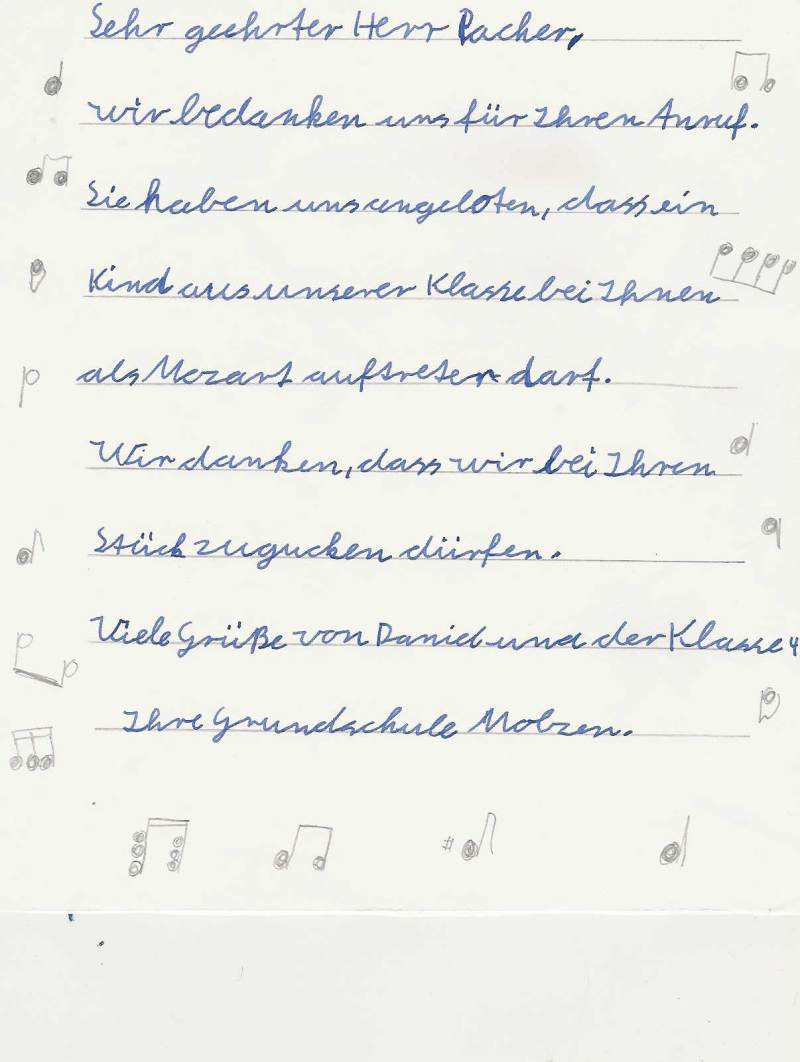 Sehr geehrter Herr Pacher,
wir bedanken uns für Ihren Anruf.
Sie haben uns angeboten, dass ein
Kind aus unserer Klasse bei Ihnen
als Mozart auftreten darf.
Wir danken, dass wir bei Ihren
Stück zugucken dürfen.
Viele Grüße von Daniel und der Klasse 4
Ihre Grundschule Molzen.